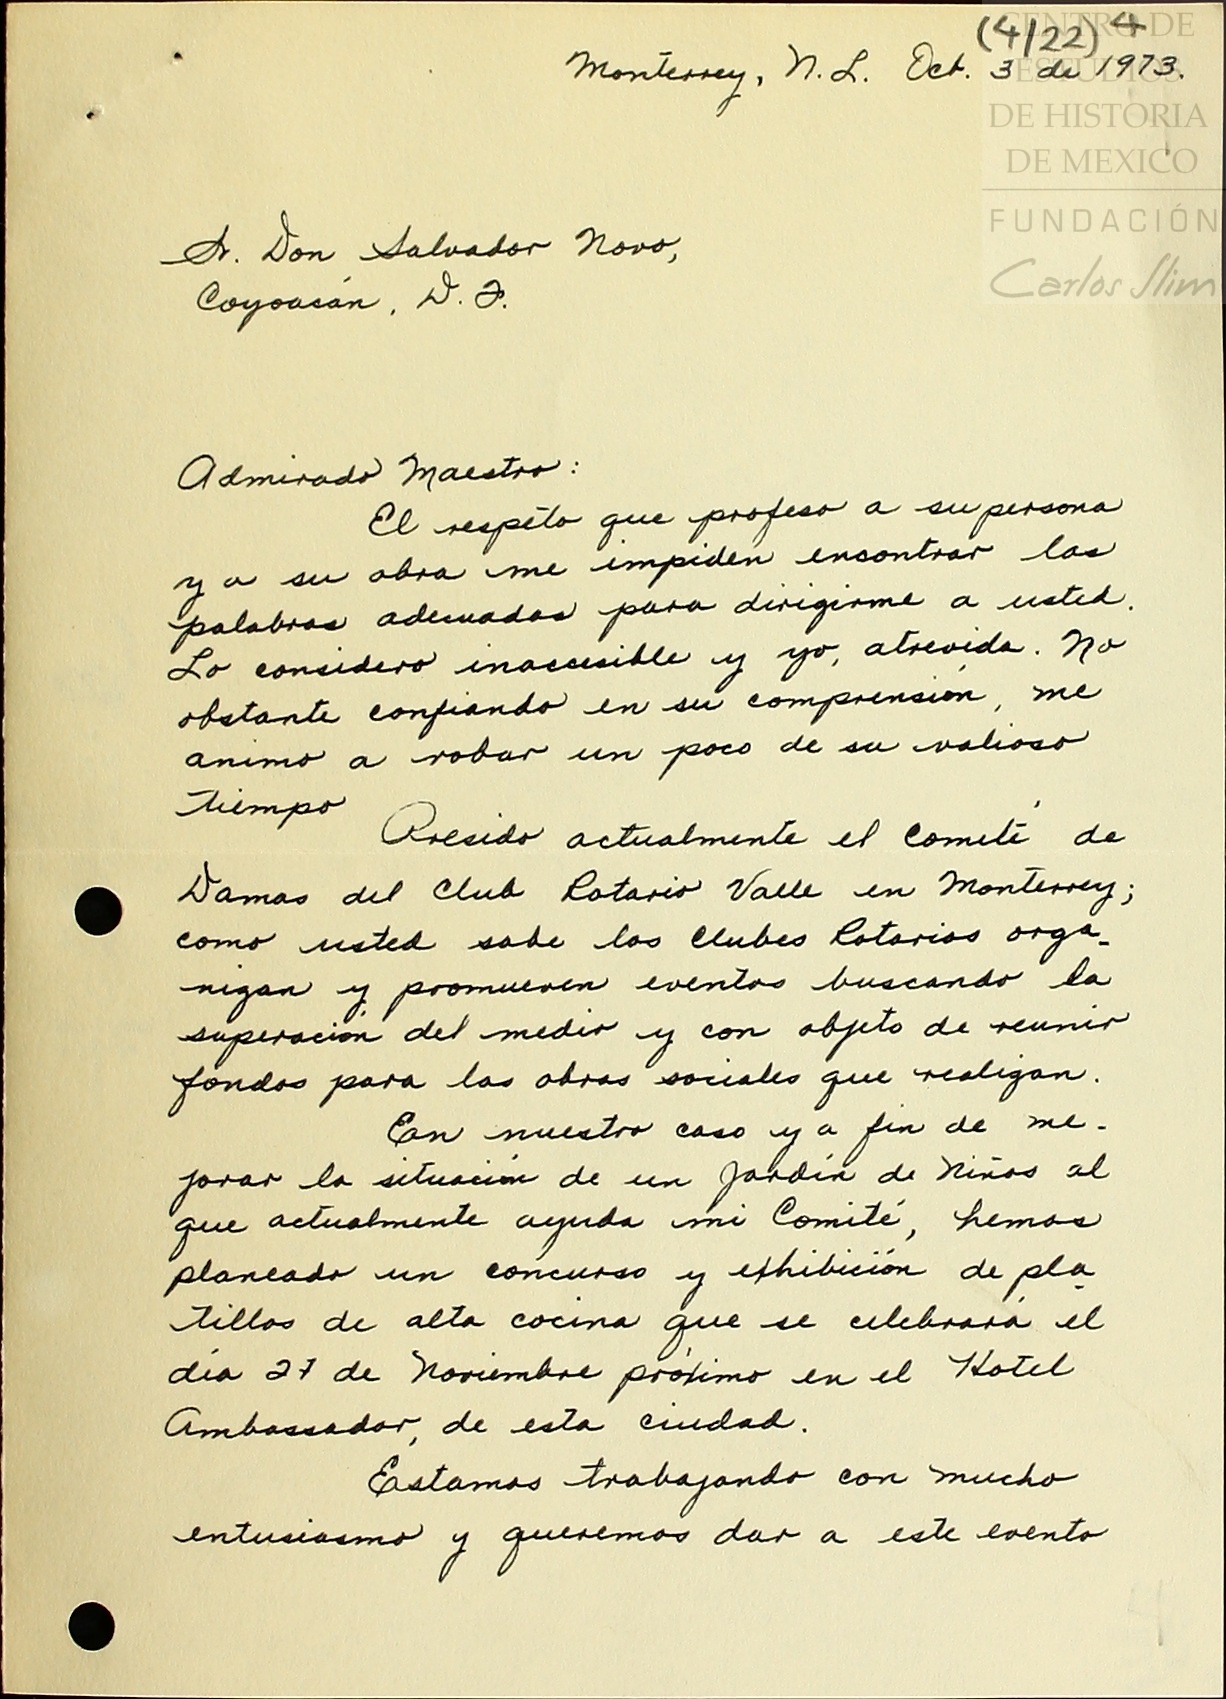 (4/22) 4
CENTRO DE
ESTUDIOS
DE HISTORIA
DE MEXICO
FUNDACIÓN
Carlos Slim
Monterrey, N.L. Oct. 3 de 1973.
Sr. Don Salvador Novo,
Coyoacán, D.F.
Admirado Maestro:
El respeto que profeso a su persona
y a su obra me impiden encontrar las
palabras adecuadas para dirigirme a usted.
Lo considero inaccesible y yo, atrevida. No
obstante confiando en su comprensión, me
animo a robar un poco de su valioso
tiempo
Presido actualmente el Comité de
Damas del Club Rotario Valle en Monterrey;
como usted sabe los Clubes Rotarios orga-
nizan y promueven eventos buscando la
superación del medio y con objeto de reunir
fondos para las obras sociales que realizan.
En nuestro caso y a fin de me-
jorar la situación de un Jardín de Niños al
que actualmente ayuda mi Comité, hemos
planeado un concurso y exhibición de pla-
tillos de alta cocina que se celebrará el
día 27 de Noviembre próximo en el Hotel
Ambassador, de esta ciudad.
Estamos trabajando con mucho
entusiasmo y queremos dar a este evento
4